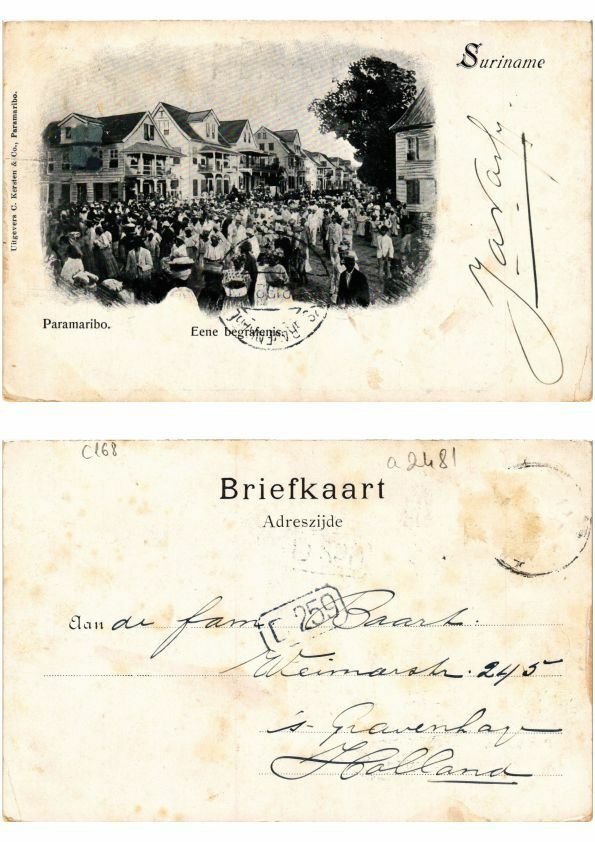 Suriname
Uitgevers C. Kersten & Co., Paramaribo.
Paramaribo.
Eene begrafenis.
C168
a 2481
Briefkaart
Adreszijde
Aan de fam. Baart.
259
Weimarstr. 245
's Gravenhage
Holland